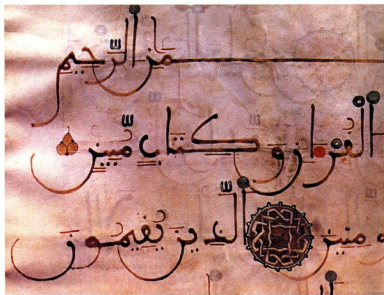 من الرحيم
القرءان وكتاب مبين
ومنين الذين يقيمون